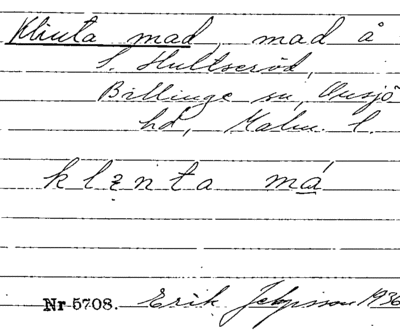 Klinta mad, mad å
S. Hultseröd,
Billinge sn, Onsjö
hd, Malm. l.
klznta má
Nr 5708. Erik Jeppsson 1936